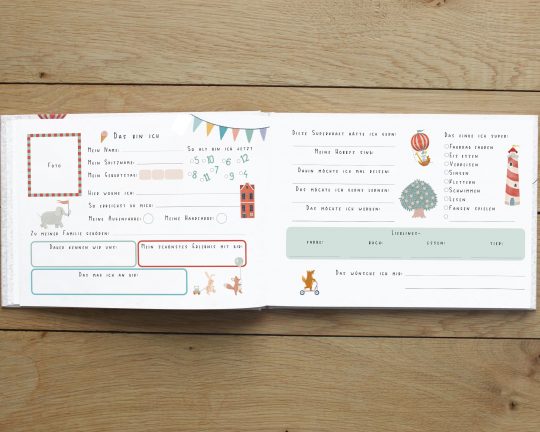 Das bin ich
Foto
Mein Name:
Mein Spitzname:
Mein Geburtstag:
So alt bin ich jetzt
5 10 6 12
8 11 7 9 4
Hier wohne ich:
So erreichst du mich:
Meine Augenfarbe:
Meine Haarfarbe:
Zu meiner Familie gehören:
Daher kennen wir uns:
Mein schönstes Erlebnis mit dir:
Das mag ich an dir:
Diese Superkraft hätte ich gern:
Meine Hobbys sind:
Dahin möchte ich mal reisen:
Das möchte ich gerne lernen:
Das möchte ich werden:
Das finde ich super:
Fahrrad fahren
Eis essen
Verreisen
Singen
Klettern
Schwimmen
Lesen
Fangen spielen
Lieblings-
farbe:
buch:
essen:
tier:
Das wünsche ich mir: